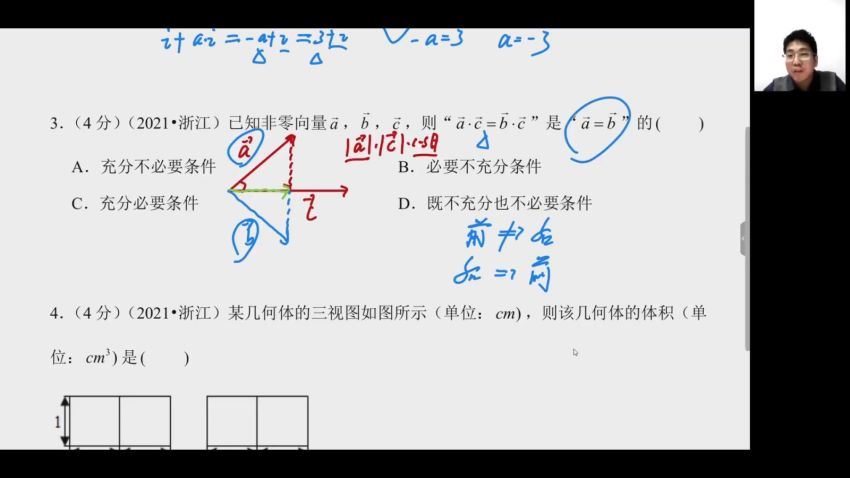 i + ai = -a+i = 3+i   -a=3   a=-3
3.（4 分）（2021•浙江）已知非零向量 a⃗，b⃗，c⃗，则“ a⃗·c⃗=b⃗·c⃗ ”是“ a⃗=b⃗ ”的(  )
|a⃗|·|c⃗|·cosθ
A．充分不必要条件 B．必要不充分条件
a⃗
C．充分必要条件 D．既不充分也不必要条件
c⃗
b⃗
前 ⇏ 后
后 ⇒ 前
4.（4 分）（2021•浙江）某几何体的三视图如图所示（单位：cm)，则该几何体的体积（单
位：cm³) 是(  )
1